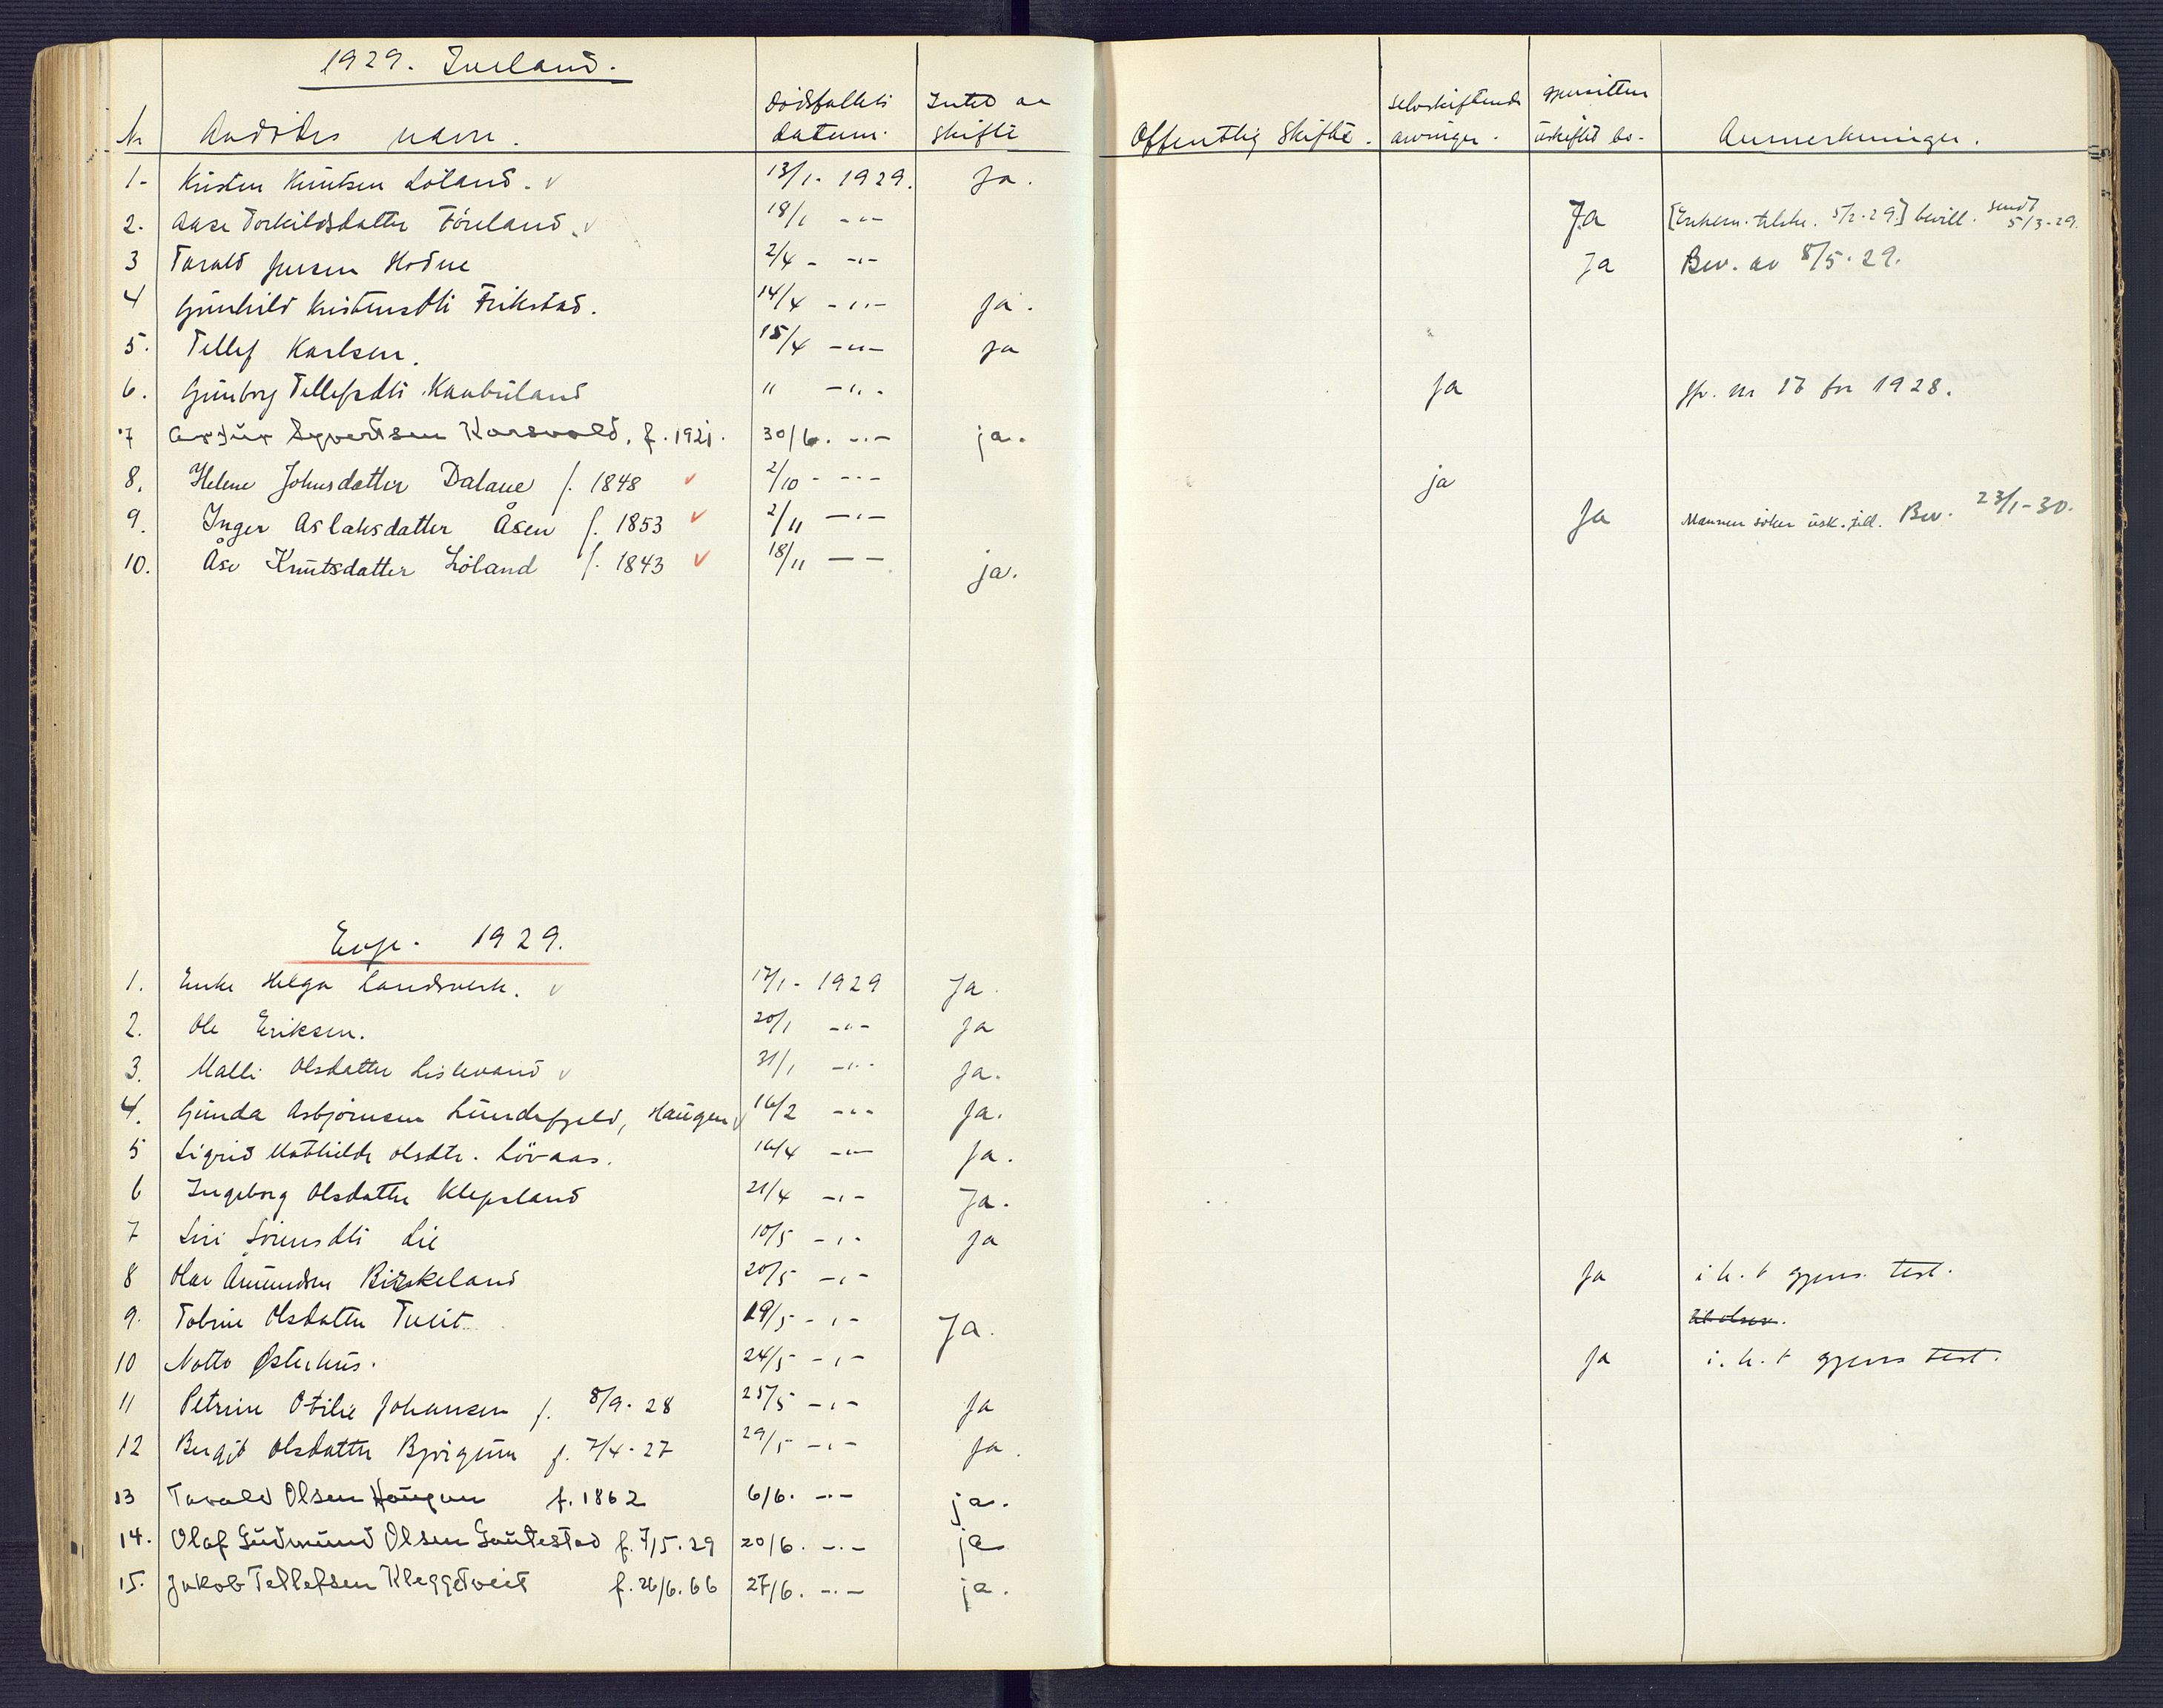 1929. Iveland.
Nr Avdødes navn. dødsfallets datum. Intet at skifte Offentlig Skifte. selvskiftende arvinger. gjensitter uskiftet bo. Anmerkninger.
1. Kristen Knutsen Löland. v 13/1. 1929. Ja.
2. Aase Torkildsdatter Föreland. v 18/1 -"- Ja 5/2-29.] bevill. sendt 5/3-29.
3 Tarald Jensen Hodne 2/4 - -"- Ja Bev. av 8/5.29.
4 Gunhild Kristensdtr Frikstad. 14/4 -"- ja.
5. Tellef Karlsen. 15/4 -"- ja
6. Gunborg Tellefsdtr. Kaabuland " -"- ja Jfr. nr 17 for 1928.
7 Artur Syvertsen Korsvold, f. 1921. 30/6. -"- ja.
8. Helene Johnsdatter Dalane f. 1848 v 2/10 - -"- ja
9. Inger Aslaksdatter Åsen f. 1853 v 2/11 -"- Ja Mannen söker usk. till. Bev. 23/1-30.
10. Åse Knutsdatter Löland f. 1843 v 18/11 - - ja.
Evje. 1929.
1. Enke Helga Landsverk. v 17/1 - 1929 Ja.
2. Ole Eriksen. 20/1 -"- ja
3. Malli Olsdatter Lislevand v 31/1 -"- Ja.
4. Gunda Asbjörnsen Lundefjeld, Haugen v 16/2 -"- Ja.
5 Sigrid Mathilde Olsdtr. Lövaas. 16/4 -"- Ja.
6 Ingeborg Olsdatter Klepsland 21/4 -"- Ja.
7 Siri Sörensdtr Lie 10/5 -"- ja
8 Olav Åmundsen Birkeland 20/5 -"- ja i h. t gjens. test.
9. Tobine Olsdatter Tveit 19/5 -"- Ja.
10 Notto Østerhus. 24/5 -"- ja i. h. t gjens test.
11 Petrine Otilie Johansen f. 8/9. 28 25/5 -"- Ja
12 Bergit Olsdatter Bjorigum f. 7/4. 27 29/5 -"- Ja.
13 Tarald Olsen Haugen f. 1862 6/6. -"- ja.
14. Olaf Gudmund Olsen Gautestad f. 7/5. 29 20/6. -"- ja
15. Jakob Tellefsen Kleggetveit f. 26/6. 66 27/6. -"- ja.